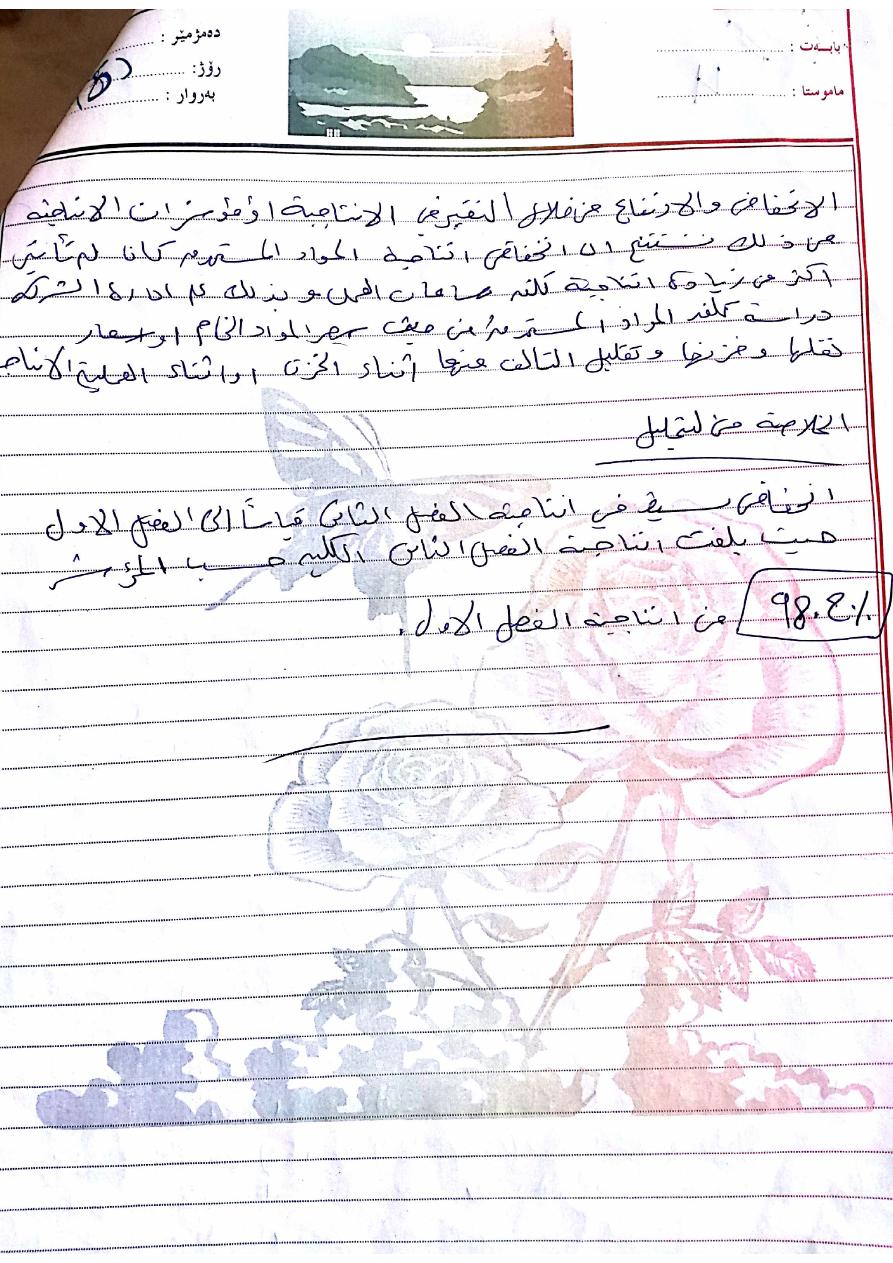 بابەت :
ماموستا :
دەمژمێر :
رۆژ:
بەروار :
الانخفاض والارتفاع من خلال التغير في الانتاجية او مؤشرات الانتاجية
من ذلك نستنتج ان انخفاض انتاجية المواد المستخدمه كانا له تأثير
اكثر من زيادة انتاجية كلفه ساعات العمل و بذلك على ادارة الشركه
دراسة كلفه المواد المستخدمة من حيث سعر المواد الخام او اسعار
نقلها و خزنها و تقليل التالف منها أثناء الخزن او اثناء العملية الانتاجـ
الخلاصة من لتحليل
انخفاض بسيط في انتاجية الفصل الثاني قياساً الى الفصل الاول
حيث بلغت انتاجية الفصل الثاني الكليه حسب المؤشر
98.2٪ من انتاجية الفصل الاول.